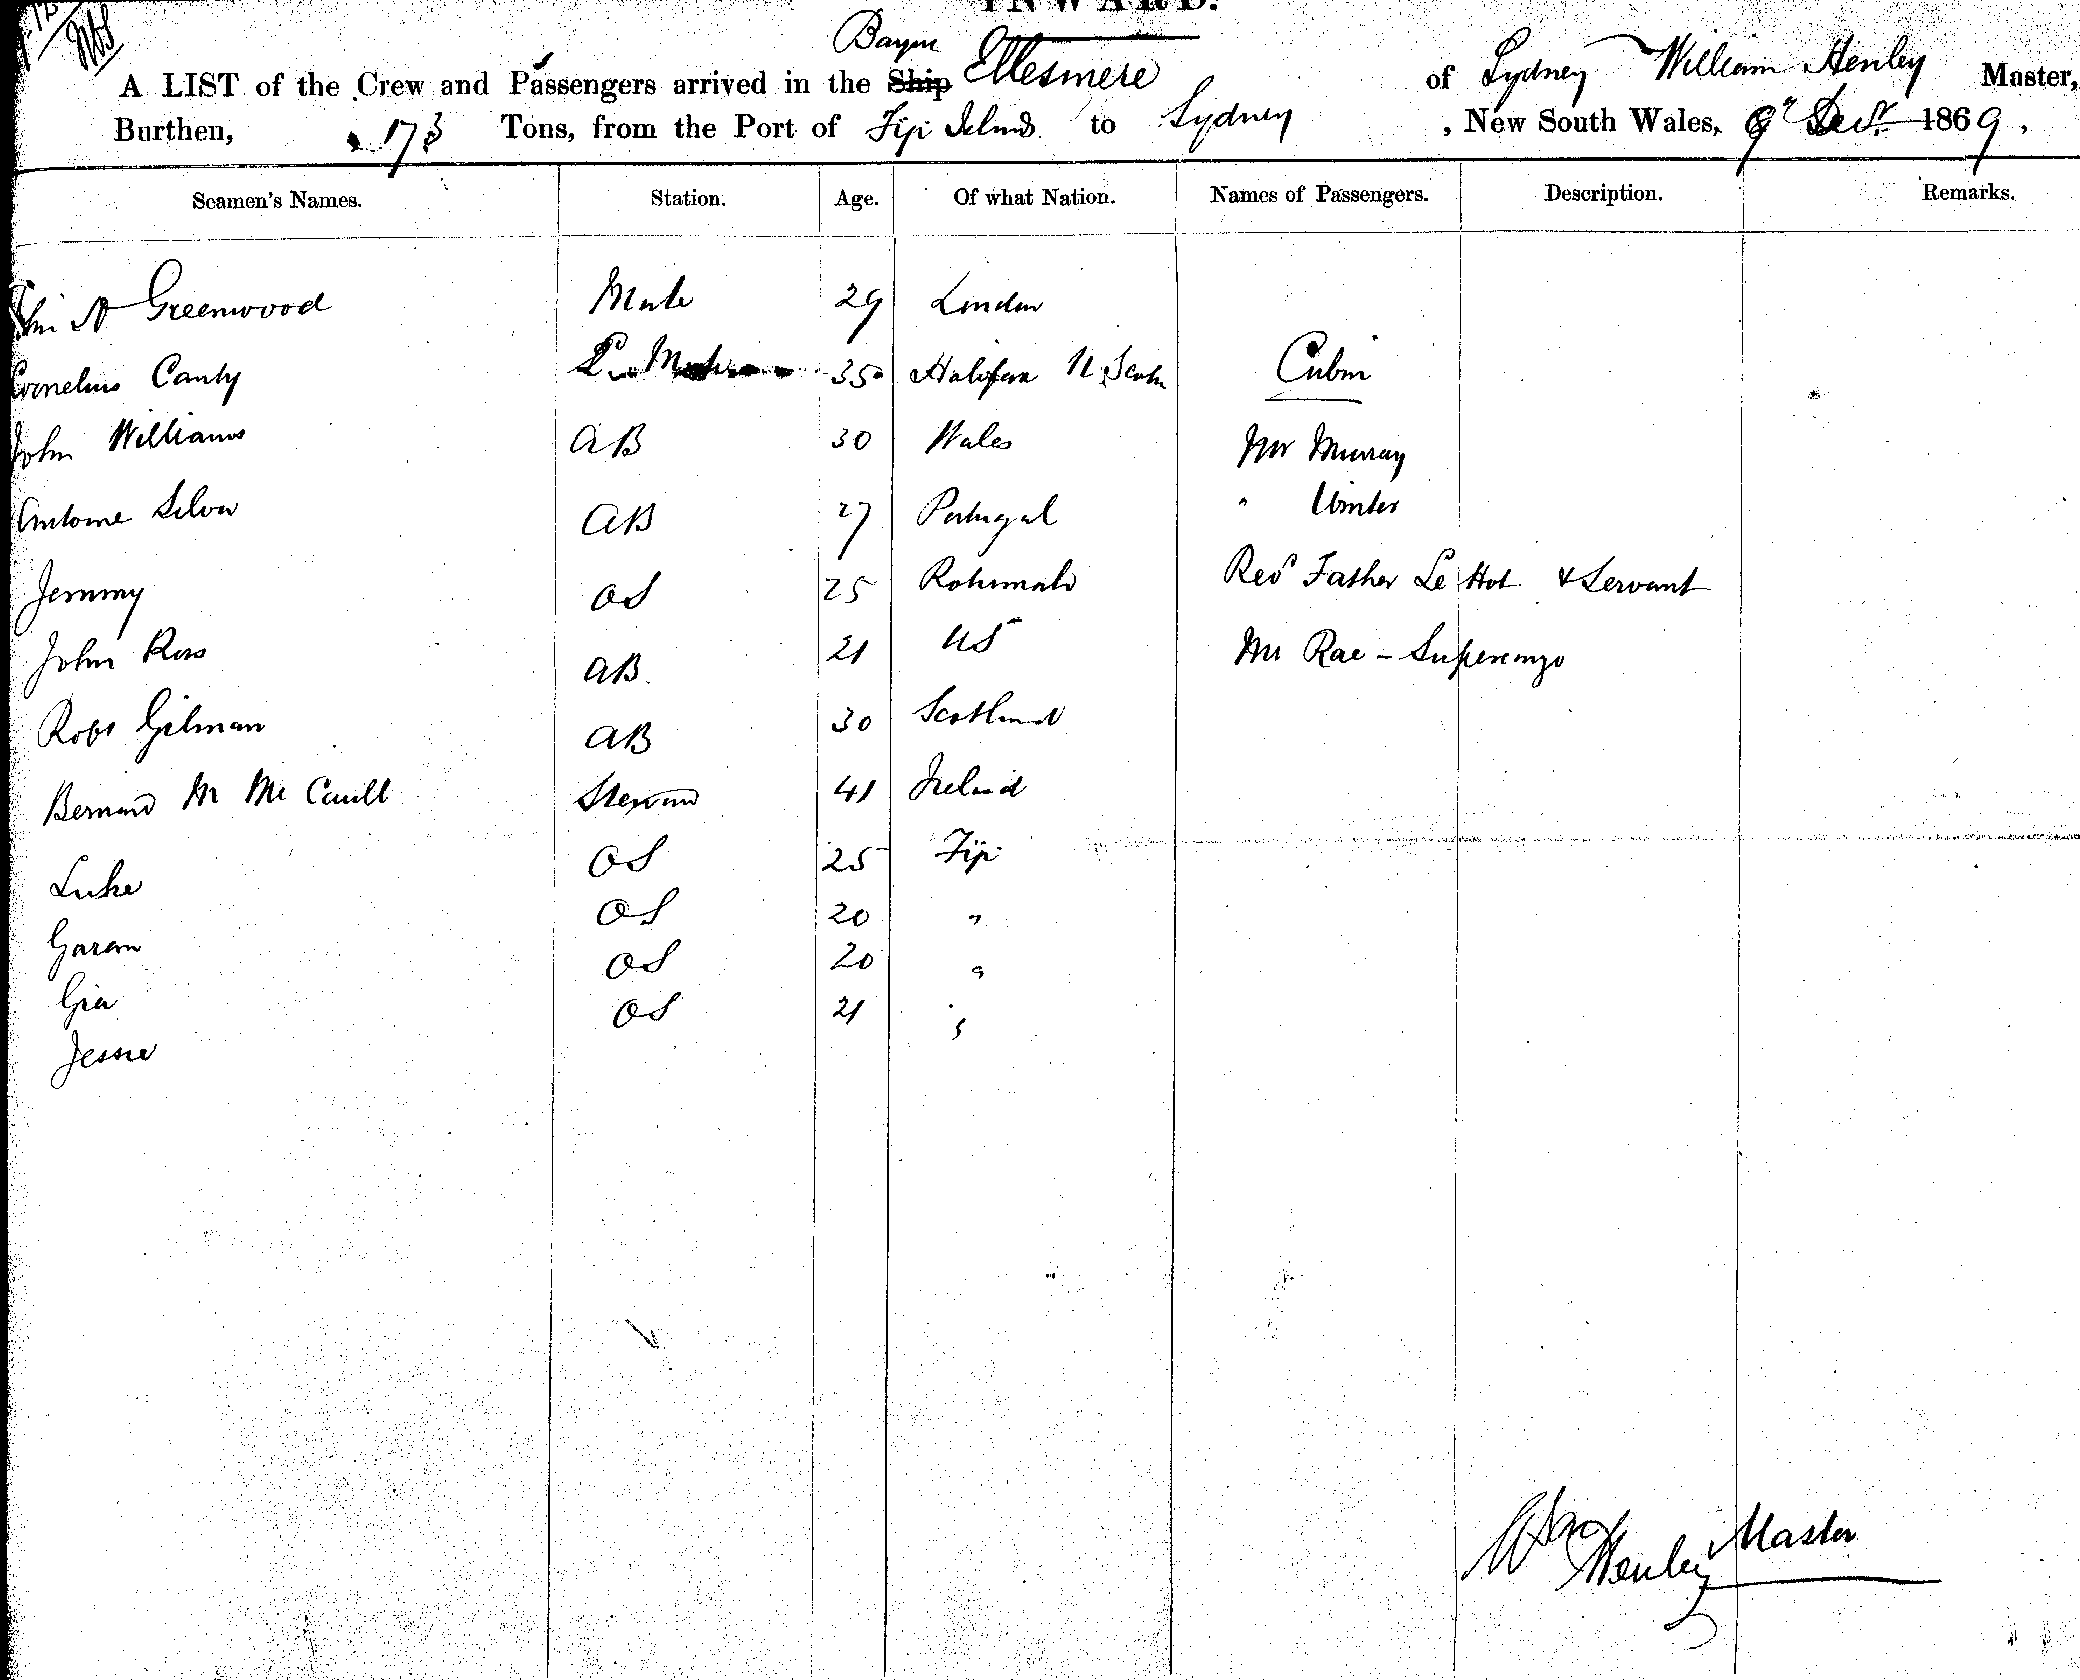 INWARD.
A LIST of the Crew and Passengers arrived in the Ship Ellesmere of Sydney William Henley Master,
Burthen, 173 Tons, from the Port of Fiji Islands to Sydney, New South Wales, 9th Decr. 1869.
Seamen's Names. Station. Age. Of what Nation. Names of Passengers. Description. Remarks.
Greenwood Mate 29 London
Cornelius Canty 35 Halifax N. Scotia Cabin
John Williams AB 30 Wales Mr Murray
Antoine Silva AB 27 Portugal "
Jemmy OS 25 Rotumah Revd Father Le Hot & Servant
John Ross AB 21 US Mr Rae - Supercargo
Robt Gilman AB 30 Scotland
Bernard M Mc Steward 41 Ireland
Luke OS 25 Fiji
OS 20 "
Gia OS 20 "
Jesse OS 21 "
Wm Henley Master